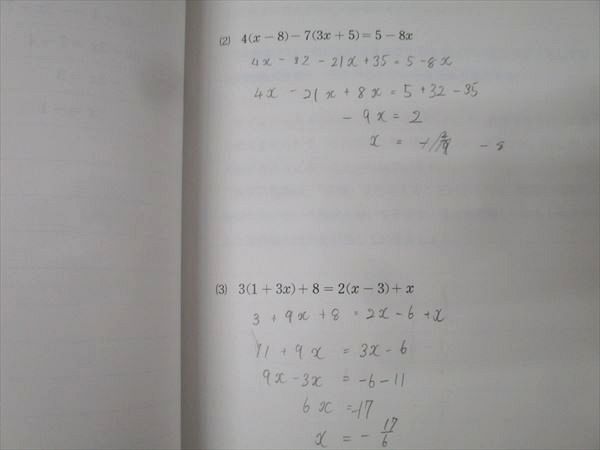 (2) 4(x−8)−7(3x+5)=5−8x
4x − 32 − 21x + 35 = 5 − 8x
4x − 21x + 8x = 5 + 32 − 35
− 9x = 2
x =
− 8
(3) 3(1+3x)+8=2(x−3)+x
3 + 9x + 8 = 2x − 6 + x
11 + 9x = 3x − 6
9x − 3x = −6 − 11
6x = −17
x = − 17/6